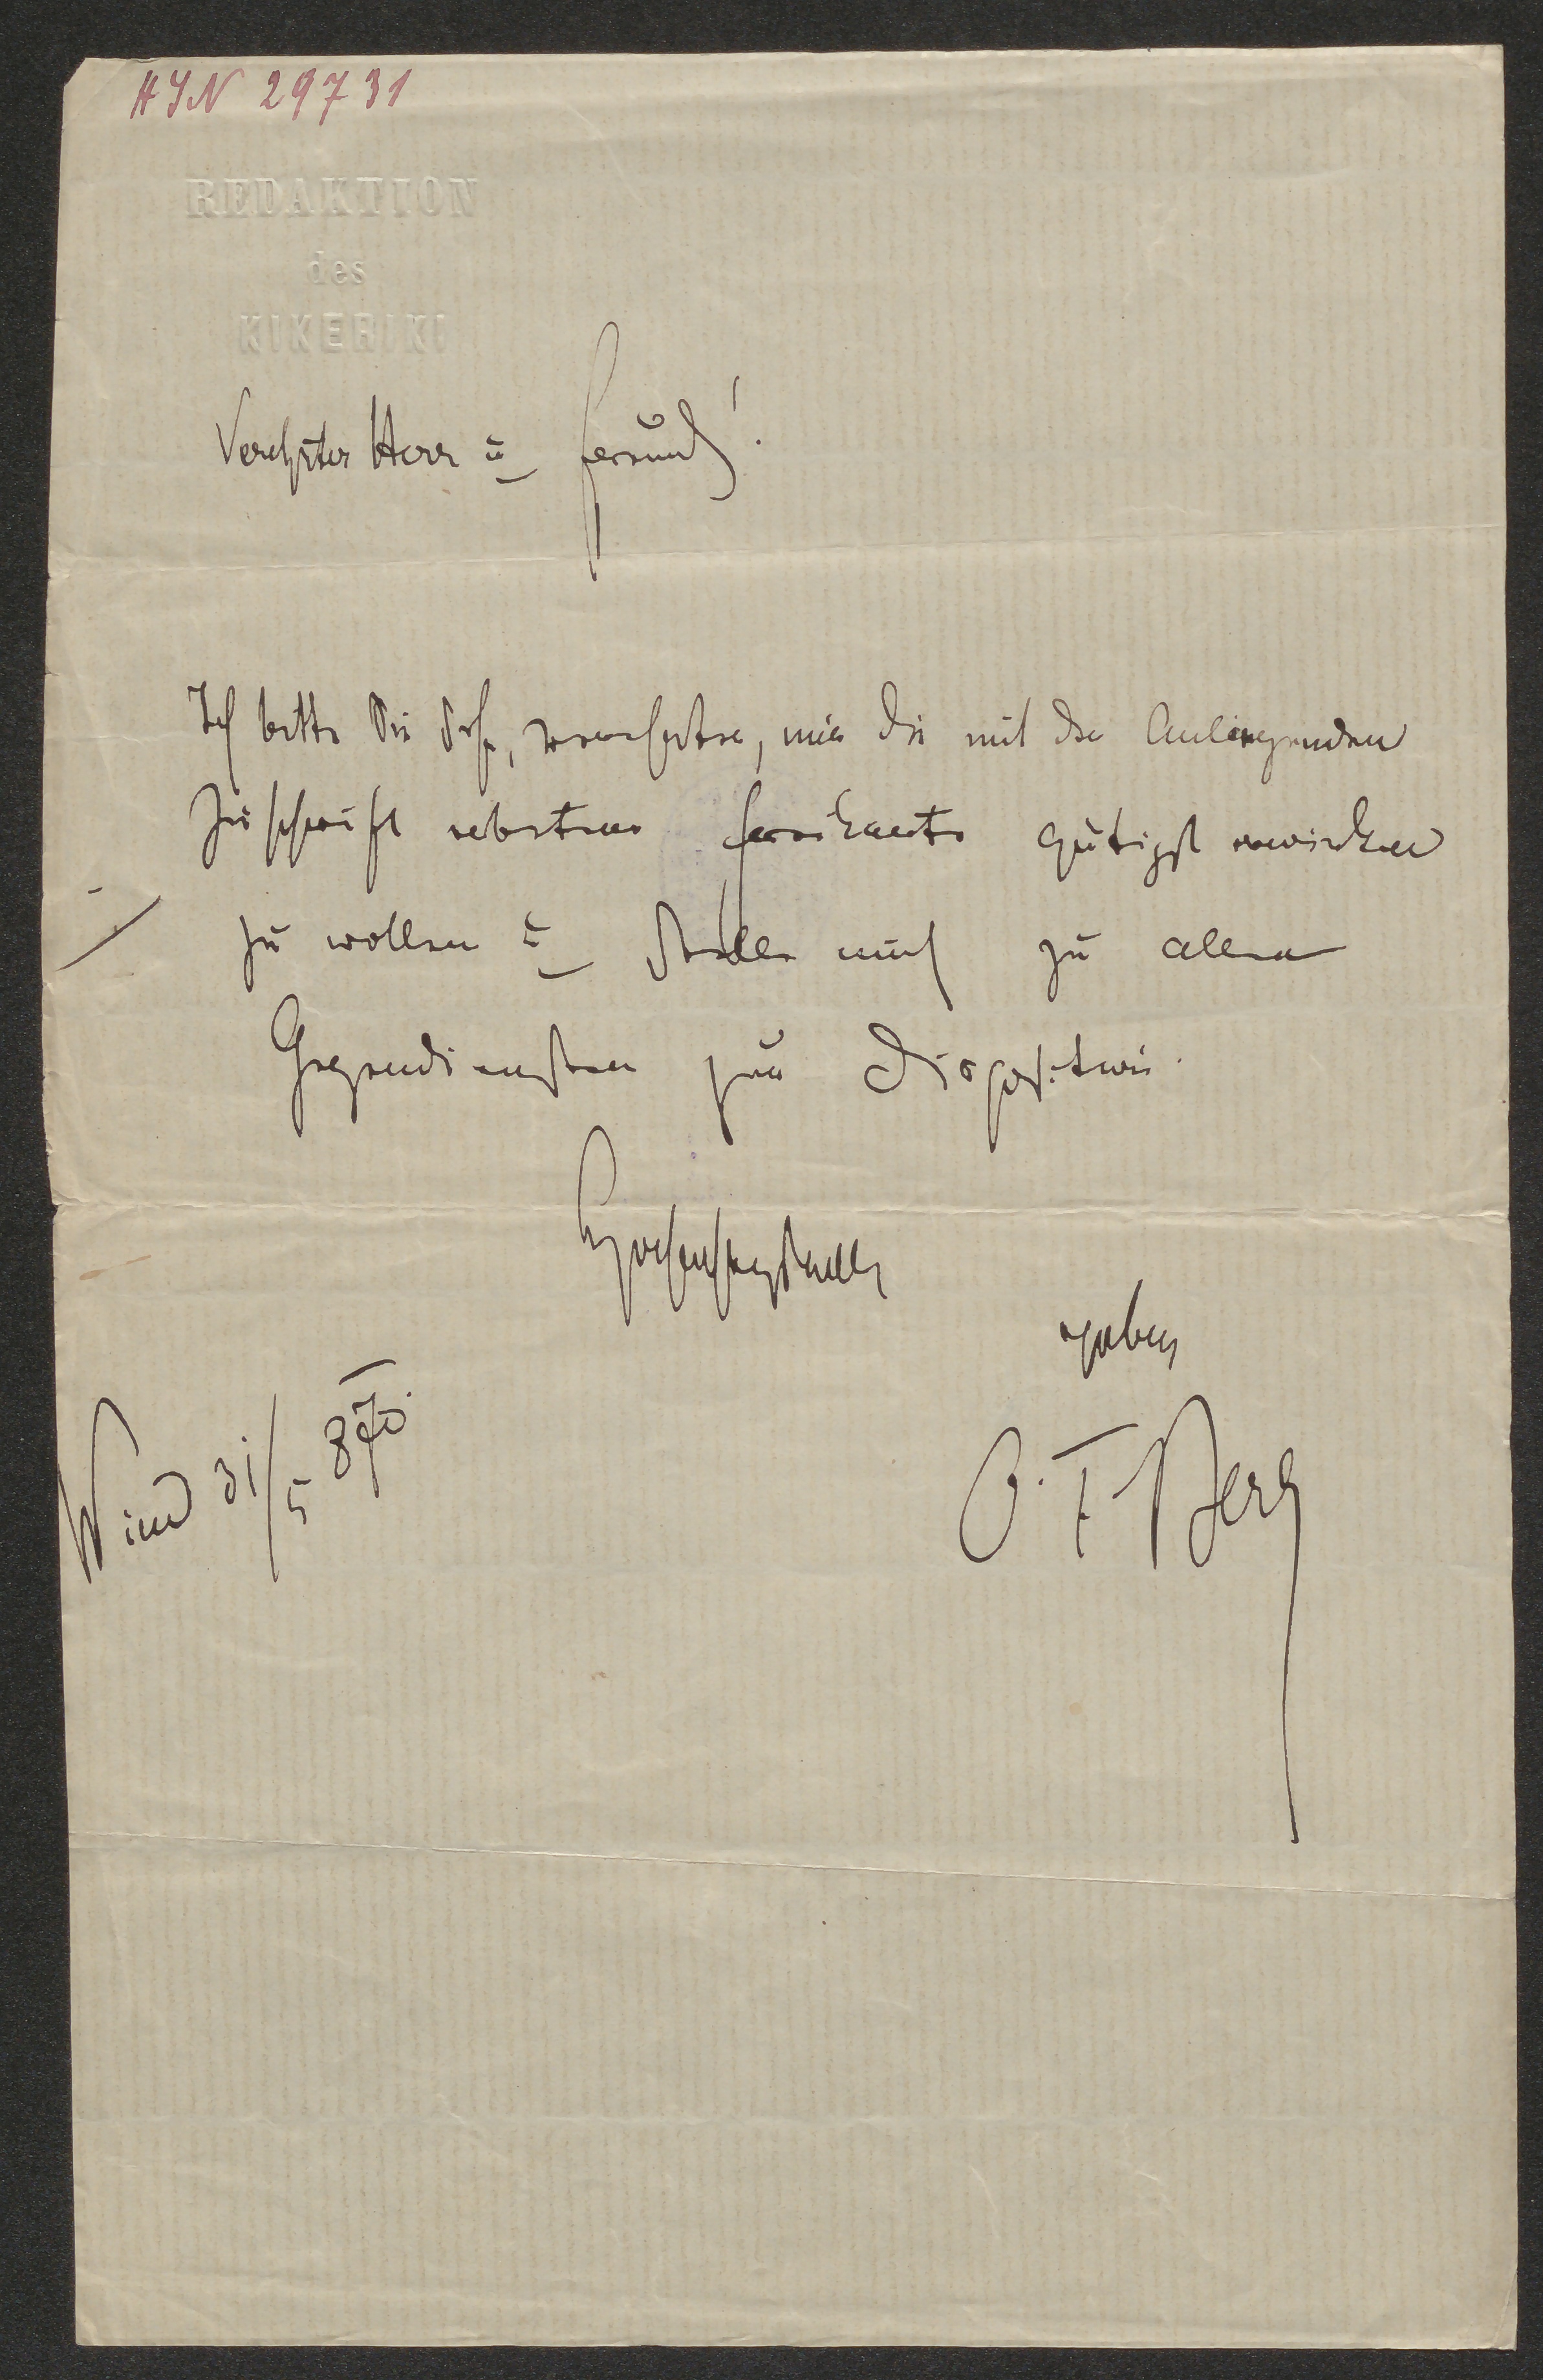 HIN 29731
REDAKTION
des
KIKERIKI
Verehrter Herr u Freund!
Ich bitte Sie sehr, verehrter, mir die mit der Anliegenden
Zuschrift erbetene Freikarte gütigst erwirken
zu wollen u stelle mich zu allen
Gegendiensten zur Disposition.
Hochachtungsvoll
ergeben
O. F. Berg
Wien 31/5 870.